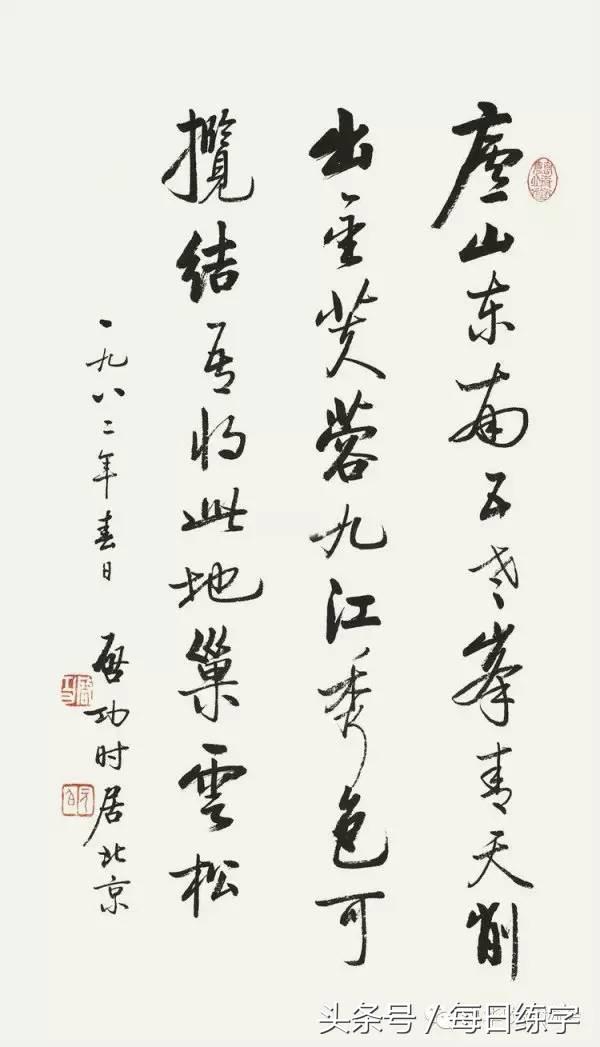 庐山东南五老峯青天削
出金芙蓉九江秀色可
攬结吾将此地巢雲松
一九八二年春日 启功时居北京
头条号/每日练字